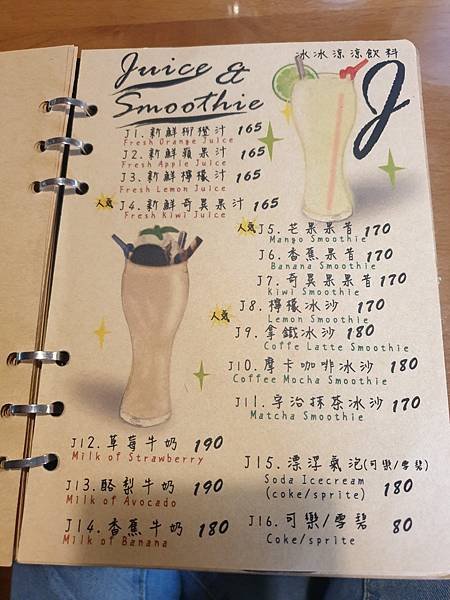 冰冰涼涼飲料
Juice &
Smoothie
J
J1. 新鮮柳橙汁 165
Fresh Orange Juice
J2. 新鮮蘋果汁 165
Fresh Apple Juice
J3. 新鮮檸檬汁 165
Fresh Lemon Juice
人氣 J4. 新鮮奇異果汁 165
Fresh Kiwi Juice
人氣 J5. 芒果果昔 170
Mango Smoothie
J6. 香蕉果昔 170
Banana Smoothie
J7. 奇異果果昔 170
Kiwi Smoothie
J8. 檸檬冰沙 170
Lemon Smoothie
人氣 J9. 拿鐵冰沙 180
Coffe Latte Smoothie
J10. 摩卡咖啡冰沙 180
Coffee Mocha Smoothie
J11. 宇治抹茶冰沙 170
Matcha Smoothie
J12. 草莓牛奶 190
Milk of Strawberry
J13. 酪梨牛奶 190
Milk of Avocado
J14. 香蕉牛奶 180
Milk of Banana
J15. 漂浮氣泡(可樂/雪碧)
Soda Icecream
(coke/sprite) 180
J16. 可樂/雪碧 80
Coke/sprite